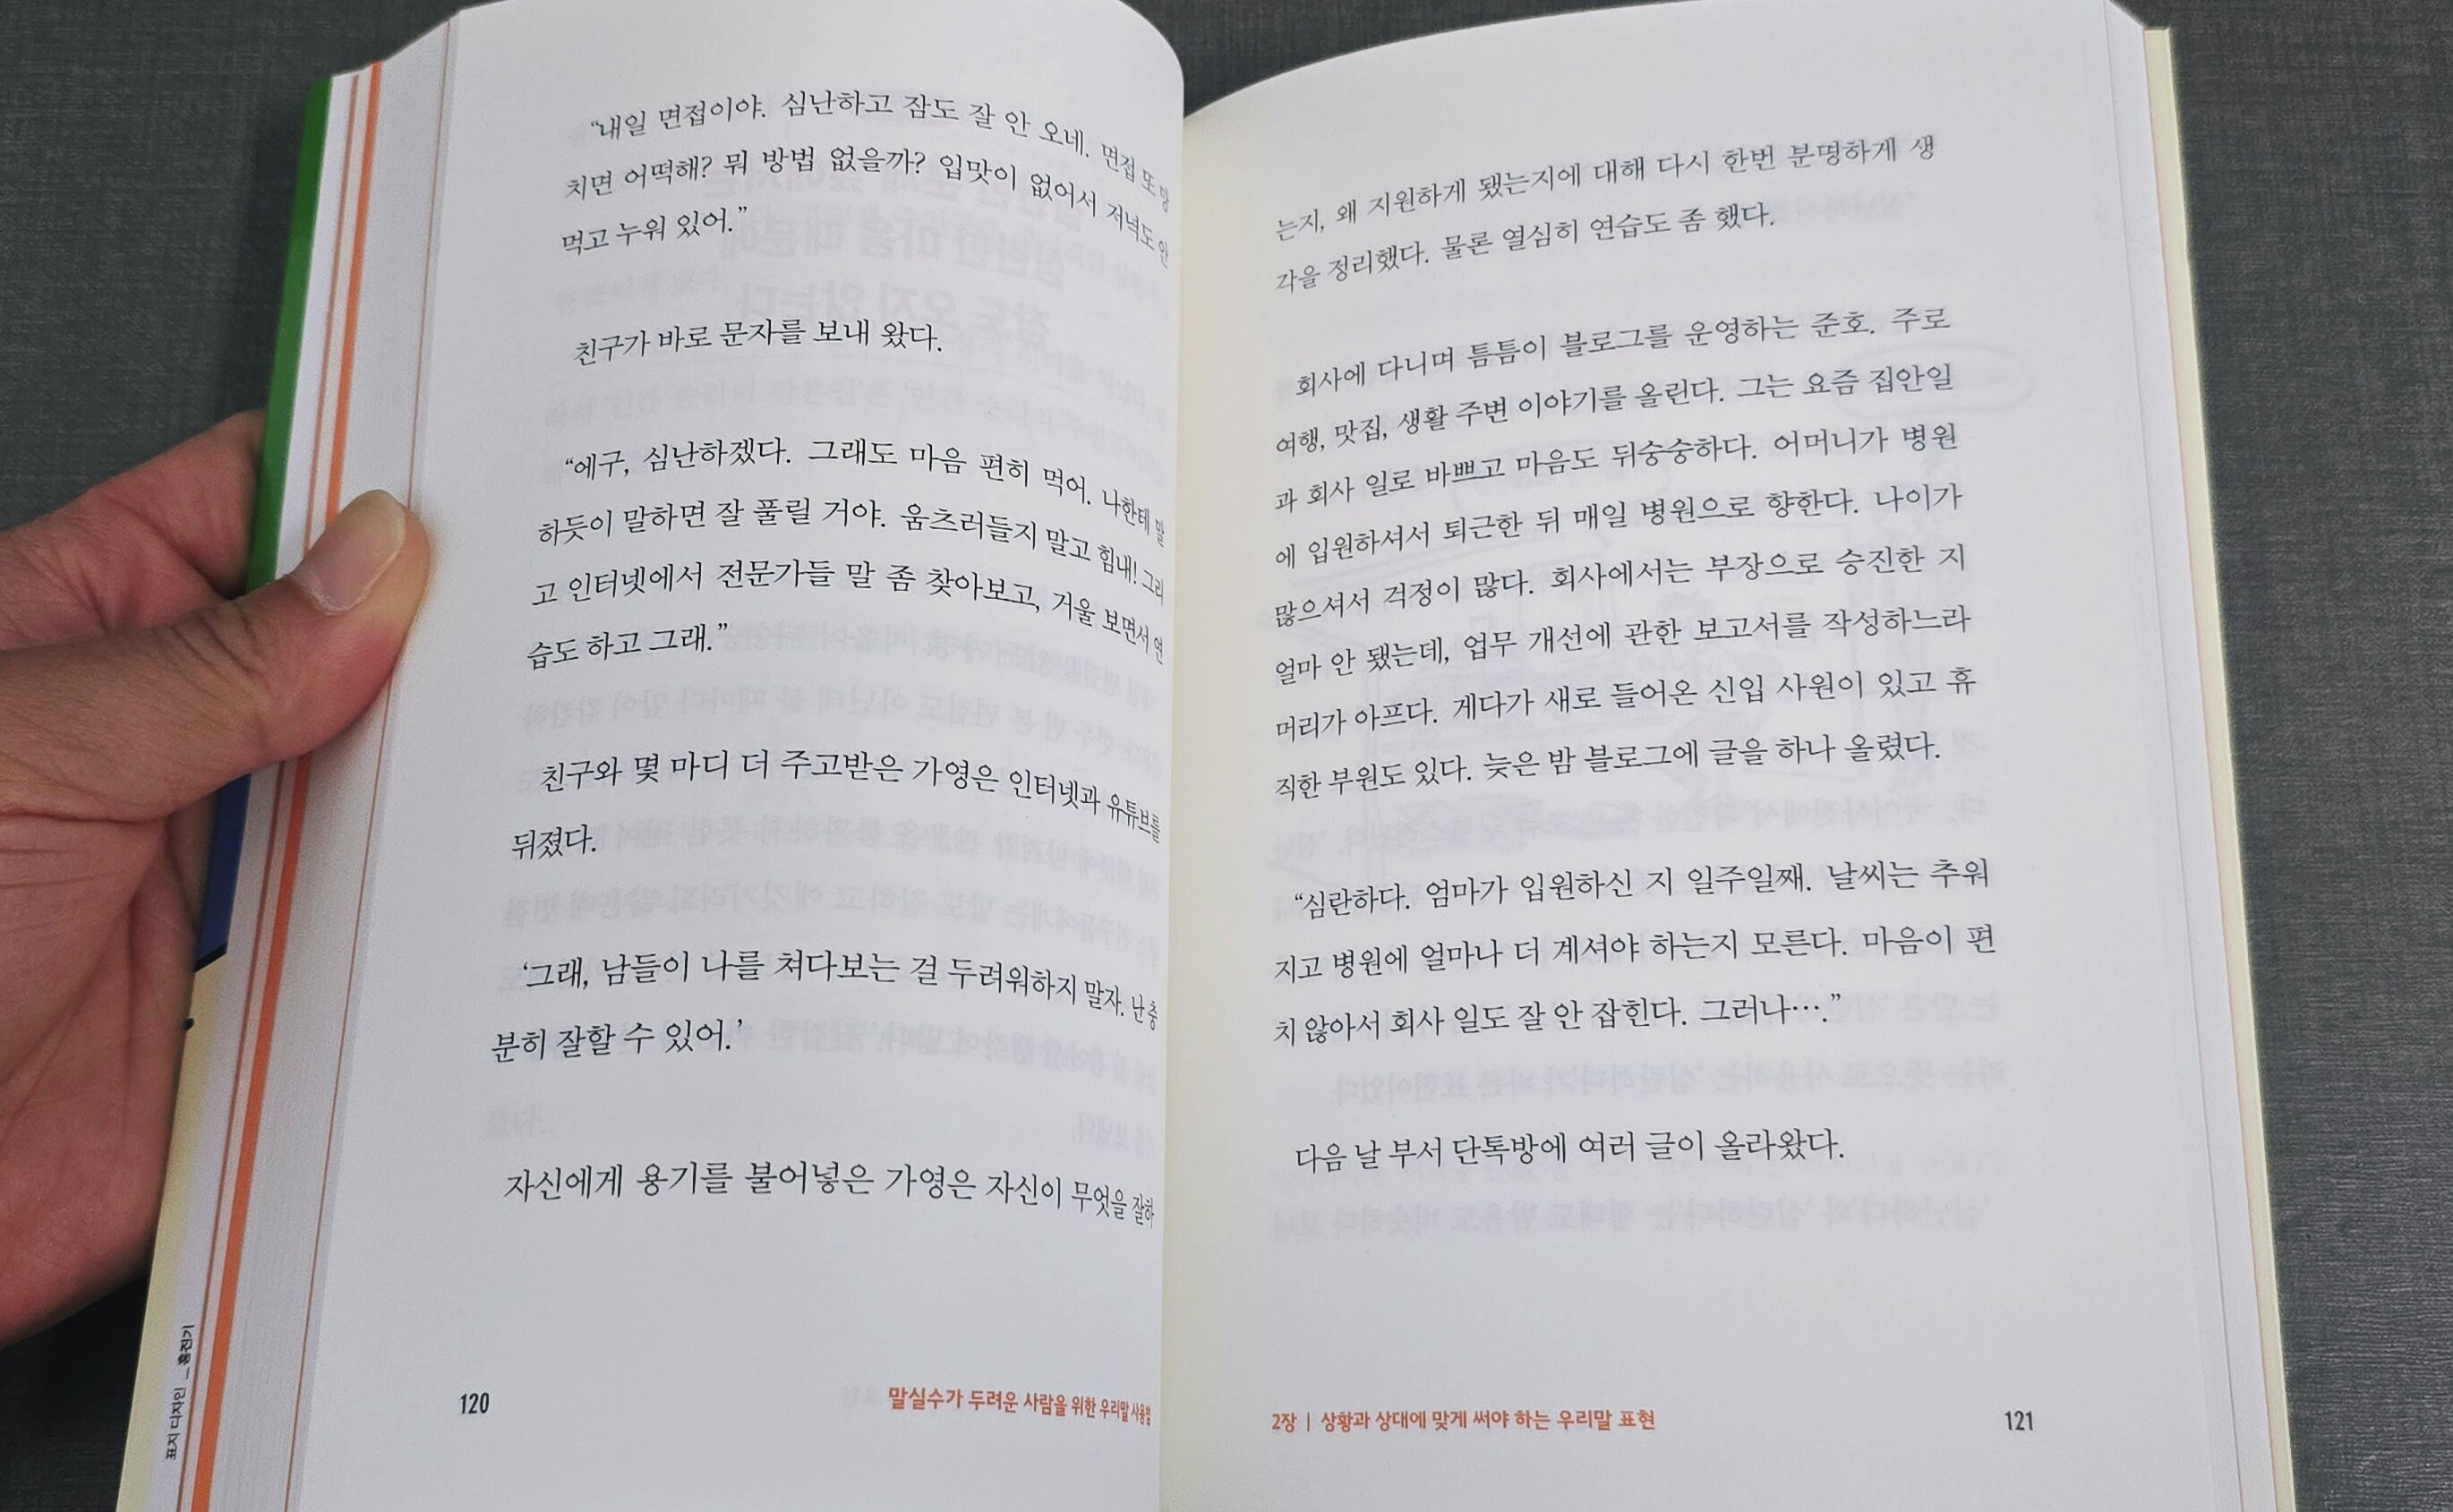 “내일 면접이야. 심난하고 잠도 잘 안 오네. 면접 또 망
치면 어떡해? 뭐 방법 없을까? 입맛이 없어서 저녁도 안
먹고 누워 있어.”
친구가 바로 문자를 보내 왔다.
“에구, 심난하겠다. 그래도 마음 편히 먹어. 나한테 말
하듯이 말하면 잘 풀릴 거야. 움츠러들지 말고 힘내! 그리
고 인터넷에서 전문가들 말 좀 찾아보고, 거울 보면서 연
습도 하고 그래.”
친구와 몇 마디 더 주고받은 가영은 인터넷과 유튜브를
뒤졌다.
‘그래, 남들이 나를 쳐다보는 걸 두려워하지 말자. 난 충
분히 잘할 수 있어.’
자신에게 용기를 불어넣은 가영은 자신이 무엇을 잘하
120
말실수가 두려운 사람을 위한 우리말 사용법
표지 디자인
는지, 왜 지원하게 됐는지에 대해 다시 한번 분명하게 생
각을 정리했다. 물론 열심히 연습도 좀 했다.
회사에 다니며 틈틈이 블로그를 운영하는 준호. 주로
여행, 맛집, 생활 주변 이야기를 올린다. 그는 요즘 집안일
과 회사 일로 바쁘고 마음도 뒤숭숭하다. 어머니가 병원
에 입원하셔서 퇴근한 뒤 매일 병원으로 향한다. 나이가
많으셔서 걱정이 많다. 회사에서는 부장으로 승진한 지
얼마 안 됐는데, 업무 개선에 관한 보고서를 작성하느라
머리가 아프다. 게다가 새로 들어온 신입 사원이 있고 휴
직한 부원도 있다. 늦은 밤 블로그에 글을 하나 올렸다.
“심란하다. 엄마가 입원하신 지 일주일째. 날씨는 추워
지고 병원에 얼마나 더 계셔야 하는지 모른다. 마음이 편
치 않아서 회사 일도 잘 안 잡힌다. 그러나….”
다음 날 부서 단톡방에 여러 글이 올라왔다.
2장 | 상황과 상대에 맞게 써야 하는 우리말 표현
121